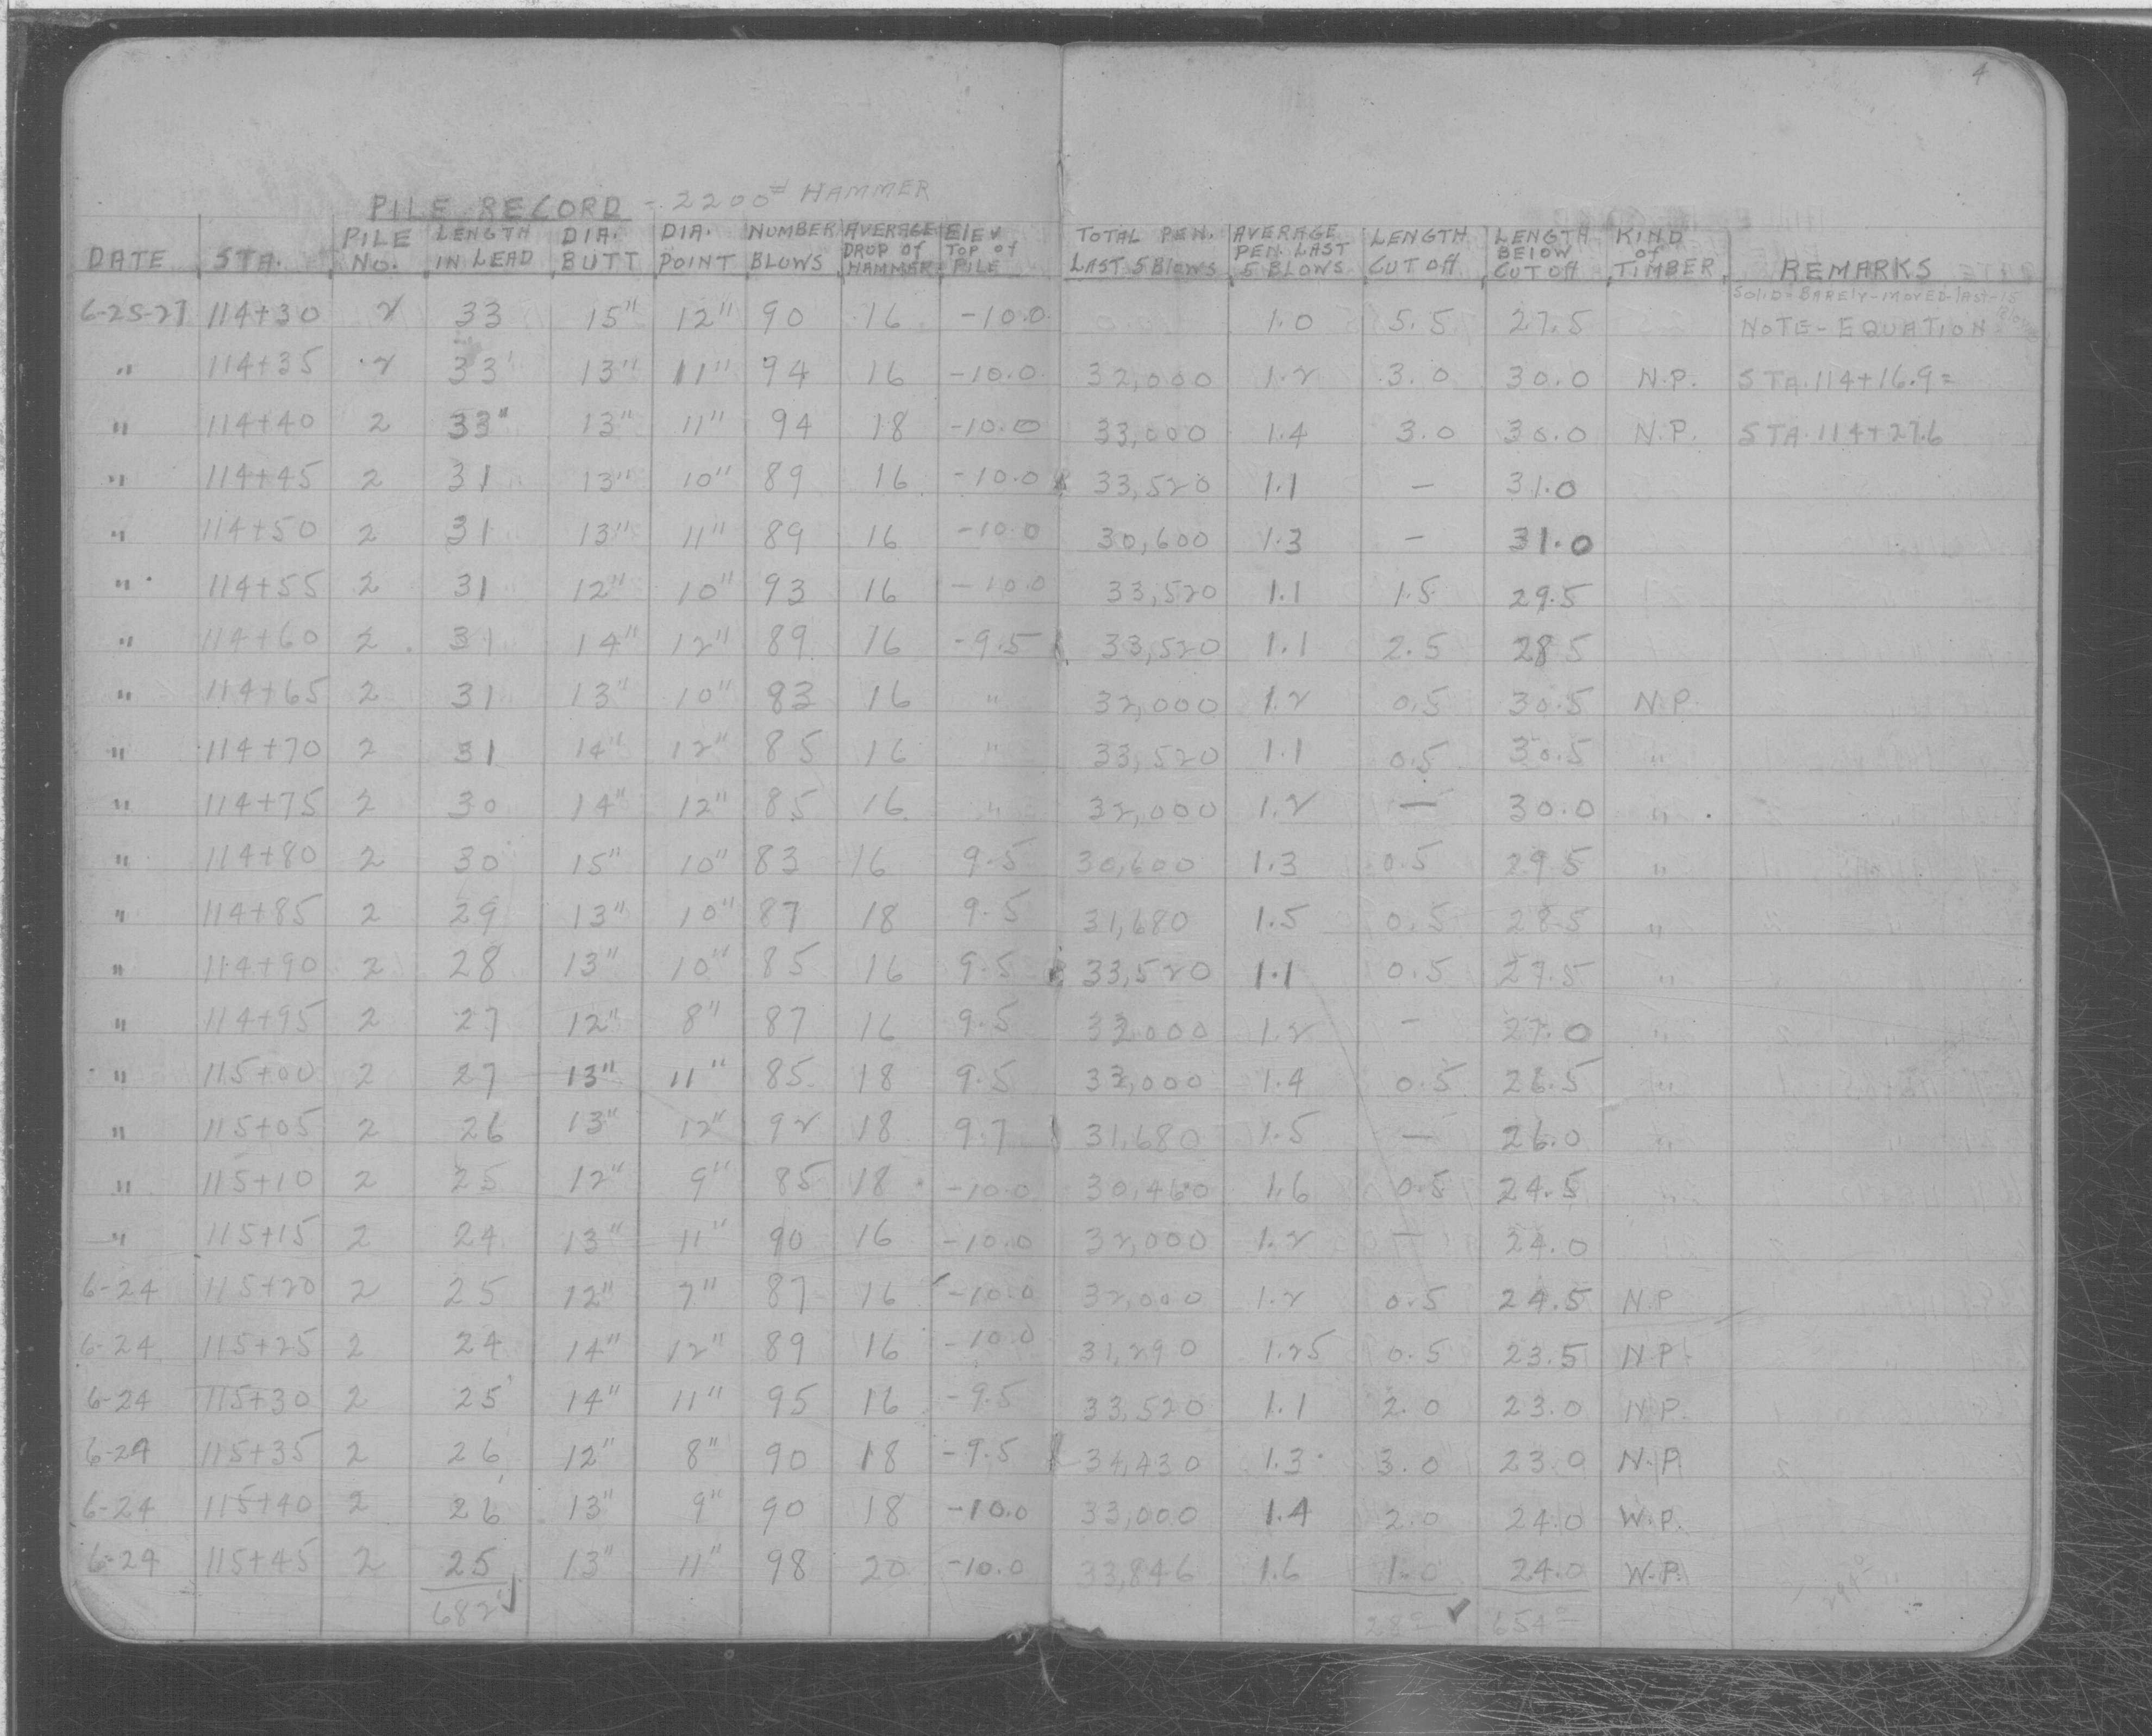 4
PILE RECORD - 2200# HAMMER
DATE STA. PILE NO. LENGTH IN LEAD DIA. BUTT DIA. POINT NUMBER BLOWS AVERAGE DROP of HAMMER ElEV TOP of PILE TOTAL PEN. LAST 5 BlOWS AVERAGE PEN. LAST 5 BLOWS LENGTH CUT Off LENGTH BELOW CUT Off KIND of TIMBER REMARKS
SOLID - BARELY - MOVED - lAST - 15
6-25-27 114+30 2 33 15" 12" 90 16 -10.0 1.0 5.5 27.5 NOTE - EQUATION
" 114+35 2 33' 13" 11" 94 16 -10.0 32,000 1.2 3.0 30.0 N.P. STA. 114+16.9 =
" 114+40 2 33" 13" 11" 94 18 -10.0 33,000 1.4 3.0 30.0 N.P. STA. 114+27.6
" 114+45 2 31 13" 10" 89 16 -10.0 33,520 1.1 - 31.0
" 114+50 2 31 13" 11" 89 16 -10.0 30,600 1.3 - 31.0
" 114+55 2 31 12" 10" 93 16 -10.0 33,520 1.1 1.5 29.5
" 114+60 2 31 14" 12" 89 16 -9.5 33,520 1.1 2.5 28.5
" 114+65 2 31 13" 10" 83 16 " 32,000 1.2 0.5 30.5 N.P.
" 114+70 2 31 14" 12" 85 16 " 33,520 1.1 0.5 30.5 "
" 114+75 2 30 14" 12" 85 16 " 32,000 1.2 - 30.0 "
" 114+80 2 30 15" 10" 83 16 9.5 30,600 1.3 0.5 29.5 "
" 114+85 2 29 13" 10" 87 18 9.5 31,680 1.5 0.5 28.5 "
" 114+90 2 28 13" 10" 85 16 9.5 33,520 1.1 0.5 27.5 "
" 114+95 2 27 12" 8" 87 16 9.5 32,000 1.2 - 27.0 "
" 115+00 2 27 13" 11" 85 18 9.5 33,000 1.4 0.5 26.5 "
" 115+05 2 26 13" 12" 92 18 9.7 31,680 1.5 - 26.0 "
" 115+10 2 25 12" 9" 85 18 -10.0 30,460 1.6 0.5 24.5 "
" 115+15 2 24 13" 11" 90 16 -10.0 32,000 1.2 - 24.0
6-24 115+20 2 25 12" 7" 87 16 -10.0 32,000 1.2 0.5 24.5 N.P
6-24 115+25 2 24 14" 12" 89 16 -10.0 31,290 1.25 0.5 23.5 N.P.
6-24 115+30 2 25' 14" 11" 95 16 -9.5 33,520 1.1 2.0 23.0 N.P.
6-24 115+35 2 26 12" 8" 90 18 -9.5 34,430 1.3 3.0 23.0 N.P.
6-24 115+40 2 26' 13" 9" 90 18 -10.0 33,000 1.4 2.0 24.0 W.P.
6-24 115+45 2 25 13" 11" 98 20 -10.0 33,846 1.6 1.0 24.0 W.P.
682' 28.0 ✓ 654.0